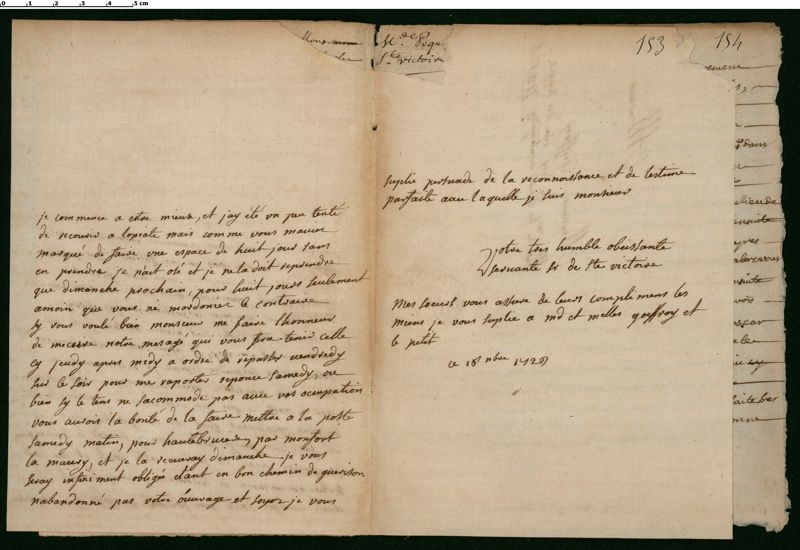 0 1 2 3 4 5 cm
Ste victoire
153 154
je commence a estre mieux, et jay été un peu tenté
de recourir a lopiate mais comme vous mavez
marquée de faire une espace de huit jours sans
en prendre je nait osé et je ne la doit reprendre
que dimanche prochain, pour huit jours seulement
amoin que vous ne mordoniez le contraire
sy vous voulé bien monsieur me faire lhonneur
de mecrire notre mesage qui vous fra tenir celle
cy jeudy apres midy a ordre de repartir vendredy
sur le soir pour me raporter reponce samedy, ou
bien sy le tens ne sacommode pas avec vos occupation
vous aurois la bonté de la faire mettre a la poste
samedy matin, pour par monfort
la maury, et je la receuray dimanche je vous
seray infiniment obligée etant en bon chemin de guerison
nabandonné pas votre ouvrage et soyez je vous
suplie persuade de la reconnoissance et de lestime
parfaite avec laquelle je suis monsieur
Votre tres humble obeissante
servante sr de Ste victoire
Mes soeurs vous assure de leurs complimens les
miens je vous suplie a md et melles goffroy et
le petit
ce 18 nbre 1728